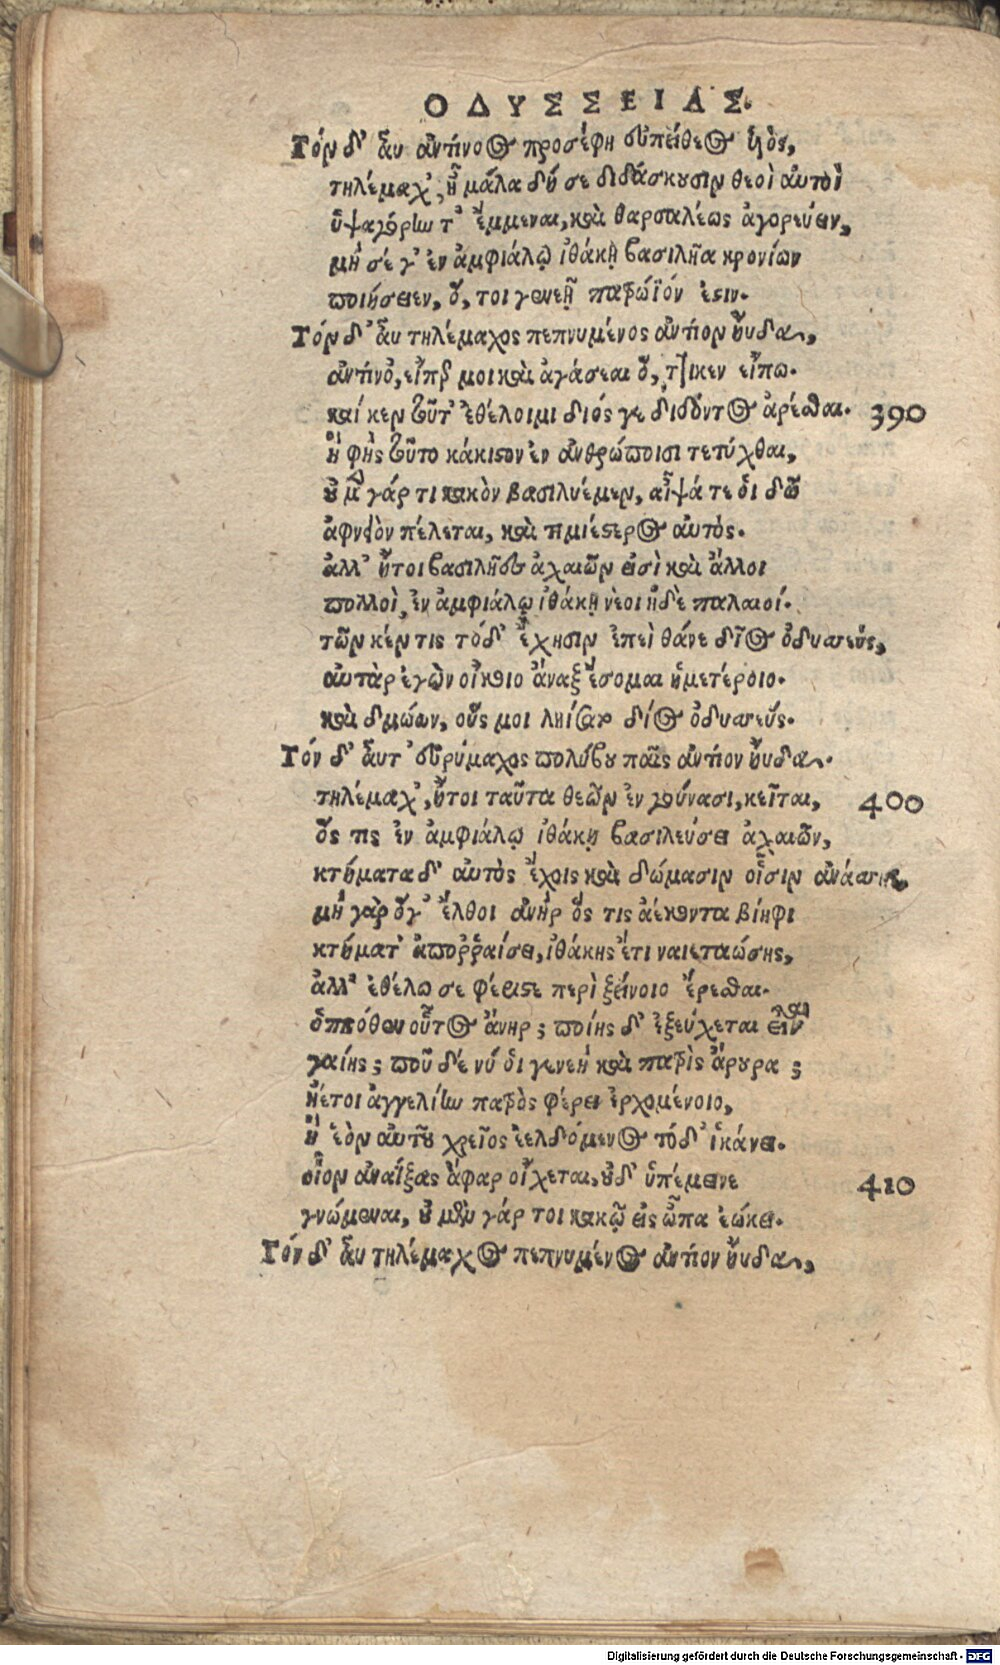 ΟΔΥΣΣΕΙΑΣ.
Τόν δ' ἂυ ἀντίνοος προσέφη ἐυπείθεος ὑιὸς,
τηλέμαχ', ἦ μάλα δή σε διδάσκουσιν θεοὶ ἀυτοὶ
ὑψαγόρην τ' ἔμμεναι, καὶ θαρσαλέως ἀγορεύειν,
μὴ σέ γ' ἐν ἀμφιάλῳ ἰθάκῃ βασιλῆα κρονίων
ποιήσειεν, ὅ, τοι γενεῇ πατρώϊόν ἐστιν.
Τόν δ' ἂυ τηλέμαχος πεπνυμένος ἀντίον ηὔδα,
ἀντίνο, εἶπέρ μοι καὶ ἀγάσεαι ὅ, τι κεν εἴπω.
καί κεν τοῦτ' ἐθέλοιμι διός γε διδόντος ἀρέσθαι. 390
ἢ φῂς τοῦτο κάκιστον ἐν ἀνθρώποισι τετύχθαι,
οὐ μὲν γάρ τι κακὸν βασιλευέμεν, αἶψά τε ὁι δῶ
ἀφνειὸν πέλεται, καὶ τιμιέστερος αὐτὸς.
ἀλλ' ἤτοι βασιλῆες ἀχαιῶν εἰσὶ καὶ ἄλλοι
πολλοὶ, ἐν ἀμφιάλῳ ἰθάκῃ νέοι ἠδὲ παλαιοί.
τῶν κέν τις τόδ' ἔχησιν ἐπεὶ θάνε δῖος ὀδυσσεύς,
αὐτὰρ ἐγὼν οἴκοιο ἄναξ ἔσομαι ἡμετέροιο.
καὶ δμώων, οὕς μοι ληίσατο δῖος ὀδυσσεύς.
Τόν δ' ἂυτ' ἐυρύμαχος πολύβου παῖς ἀντίον ηὔδα.
τηλέμαχ', ἤτοι ταῦτα θεῶν ἐν γούνασι, κεῖται, 400
ὅς τις ἐν ἀμφιάλῳ ἰθάκῃ βασιλεύσει ἀχαιῶν,
κτήματα δ' αὐτὸς ἔχοις καὶ δώμασιν οἷσιν ἀνάσσοις,
μὴ γὰρ ὅγ' ἔλθοι ἀνὴρ ὅς τις ἀέκοντα βίηφι
κτήματ' ἀποῤῥαίσει, ἰθάκης ἔτι ναιεταώσης,
ἀλλ' ἐθέλω σε φέριστε περὶ ξείνοιο ἔρεσθαι.
ὁππόθεν οὗτος ἀνήρ; ποίης δ' ἐξεύχεται εἶναι
γαίης; ποῦ δέ νύ ὁι γενεὴ καὶ πατρὶς ἄρουρα;
ἠέ τοι ἀγγελίην πατρὸς φέρει ἐρχομένοιο,
ἢ ἑὸν αὐτοῦ χρεῖος ἐελδόμενος τόδ' ἱκάνει.
οἷον ἀναΐξας ἄφαρ οἴχεται, οὐδ' ὑπέμεινε 410
γνώμεναι, οὐ μὲν γάρ τοι κακῷ εἰς ὦπα ἐῴκει.
Τόν δ' ἂυ τηλέμαχος πεπνυμένος ἀντίον ηὔδα,
Digitalisierung gefördert durch die Deutsche Forschungsgemeinschaft - DFG